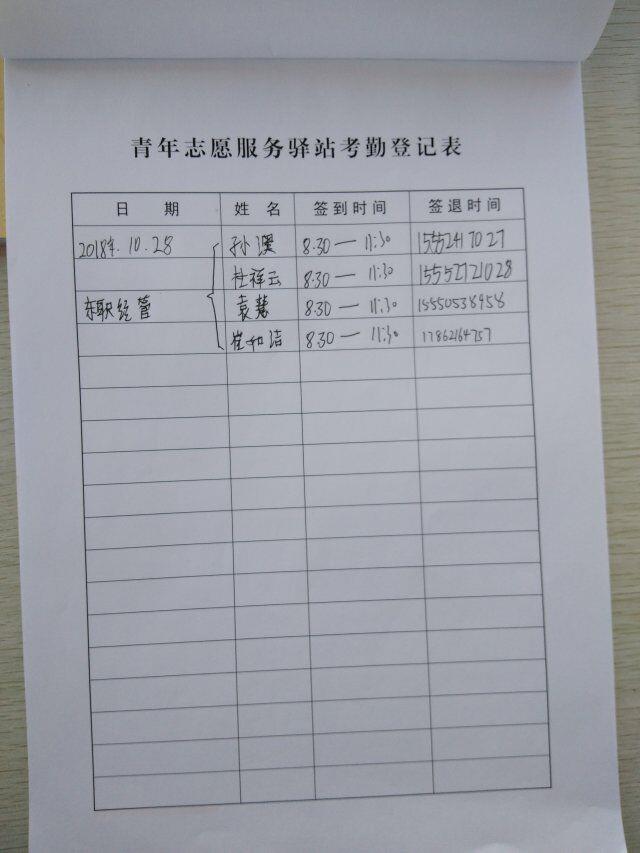 青年志愿服务驿站考勤登记表
日 期 姓 名 签到时间 签退时间
2018年.10.28 孙 8:30—11:30
杜祥云 8:30—11:30 15552721028
东职经管 袁慧 8:30—11:30 15550538958
崔如洁 8:30—11:30 17862164757